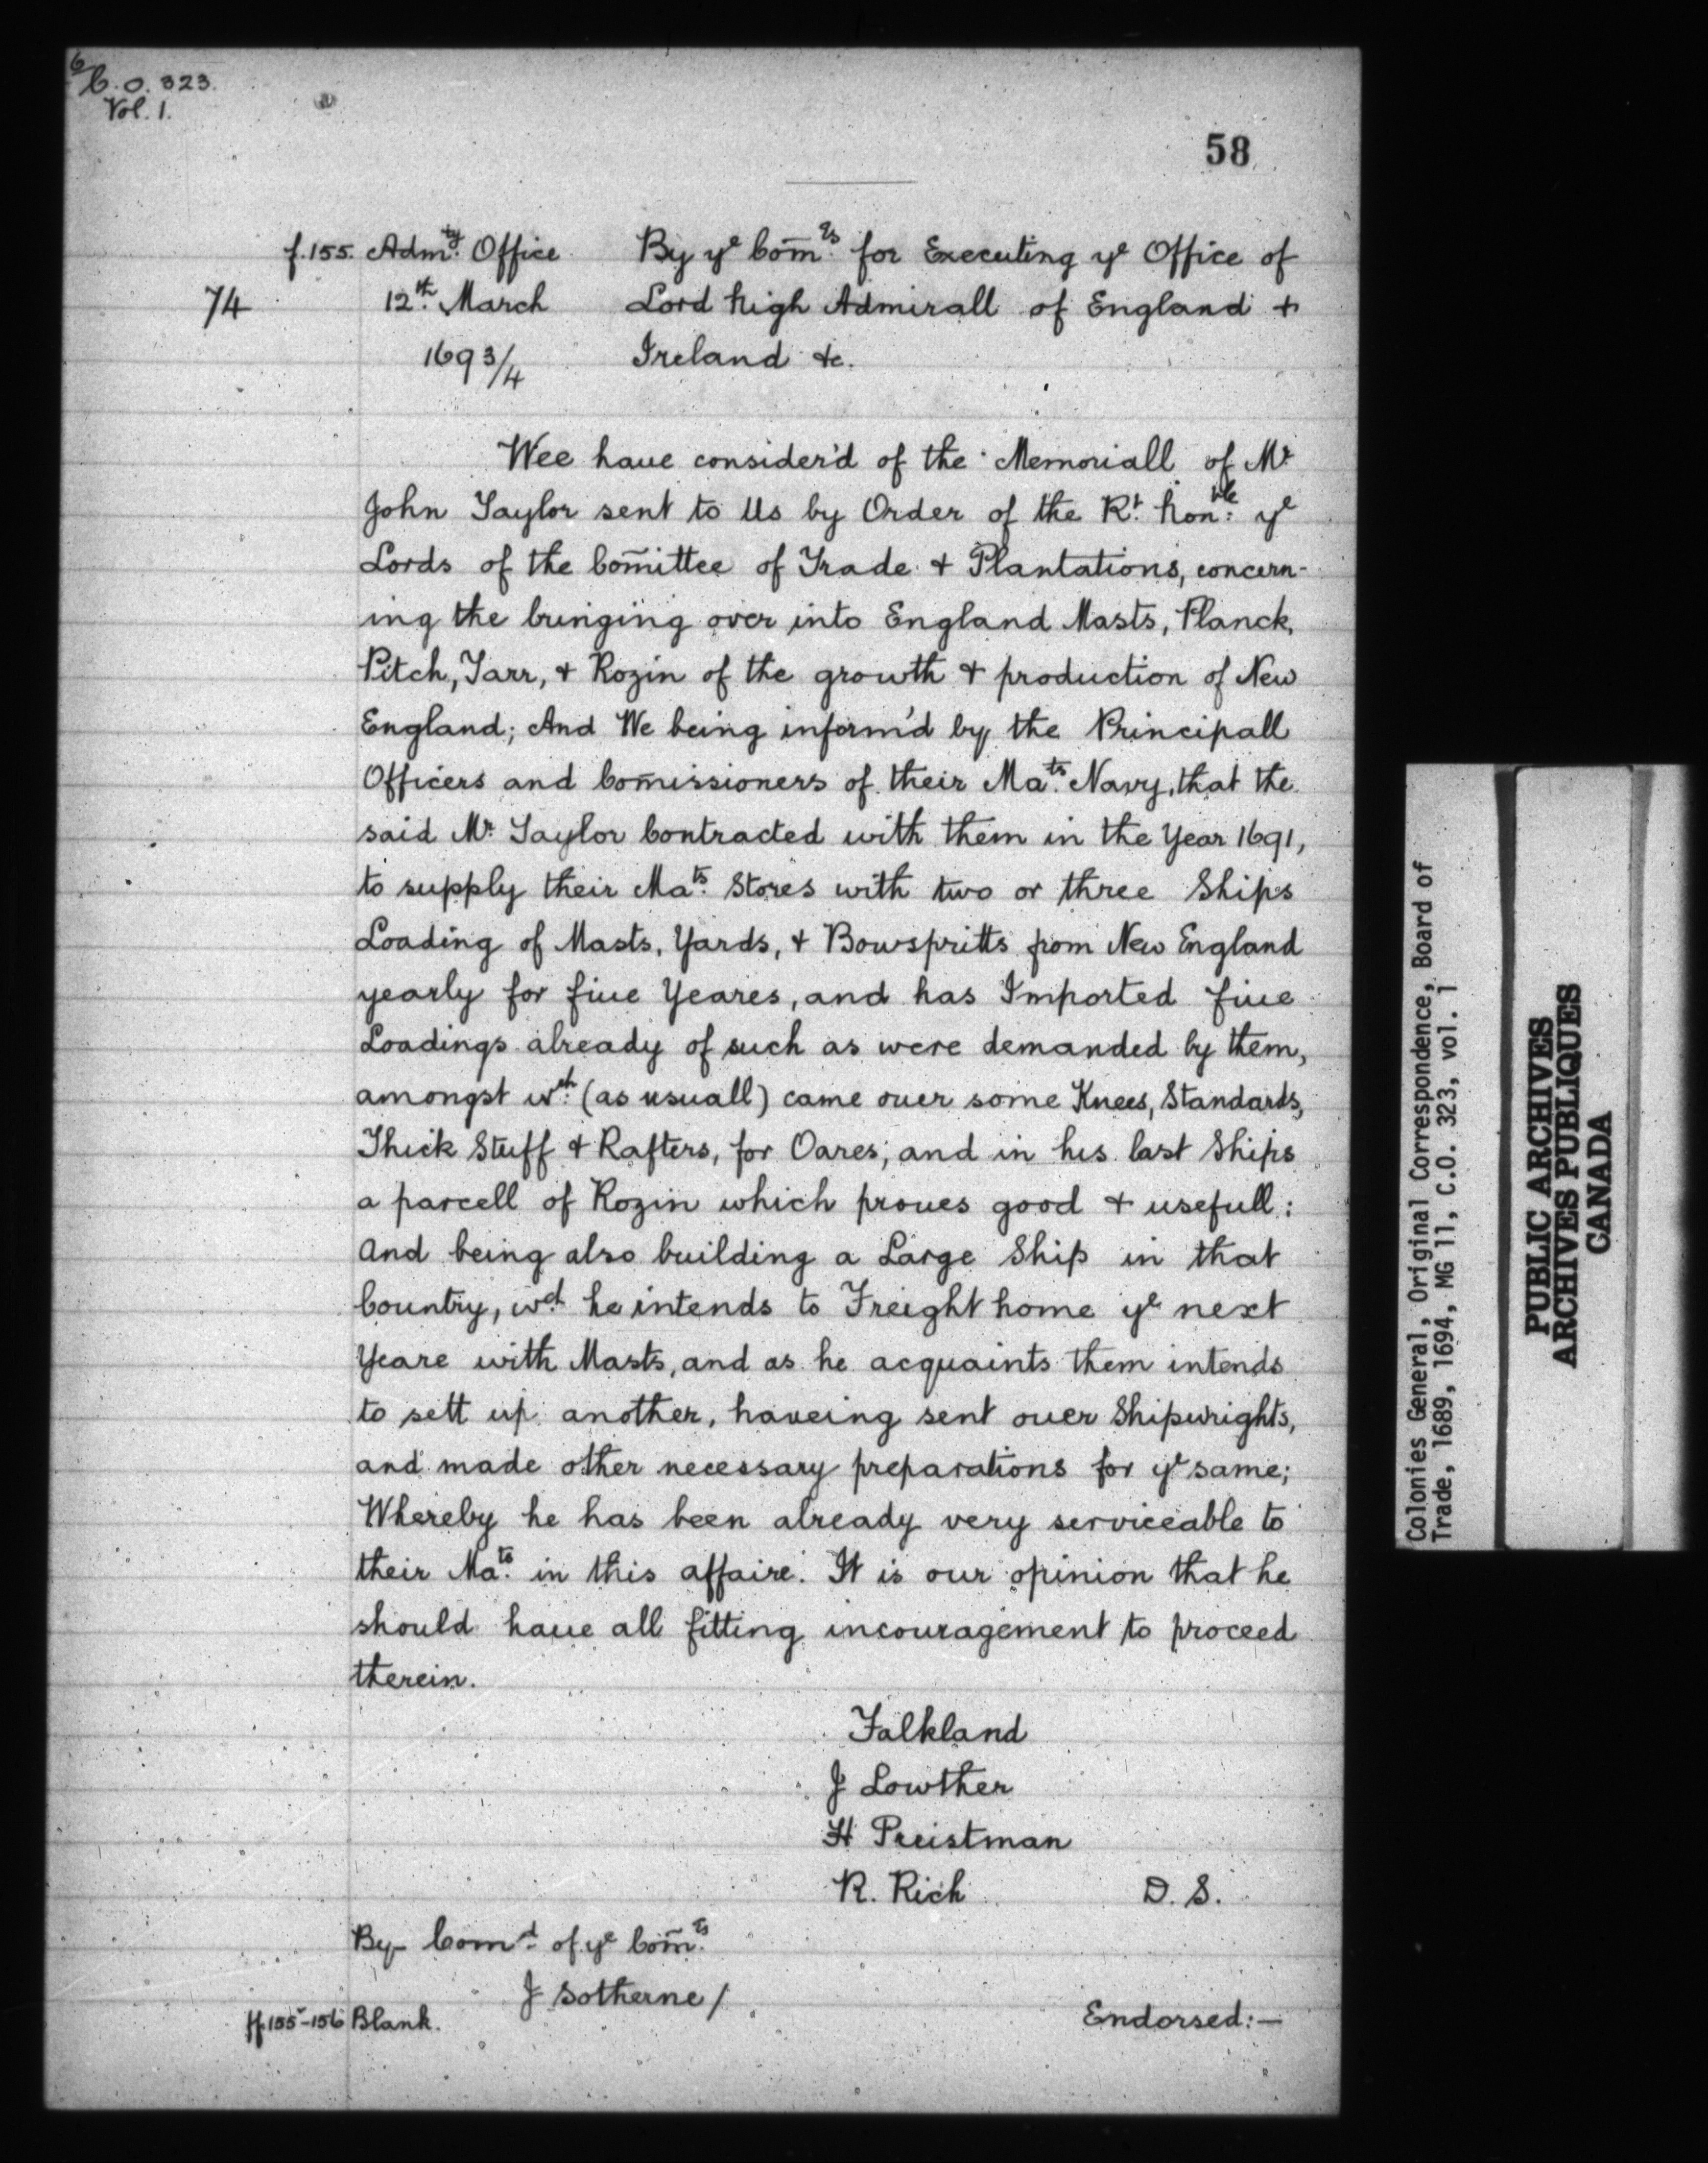 6/C.O. 323.
Vol. 1.
58
f.155. Admty. Office By ye Com̄rs. for Executing ye Office of
74 12th. March Lord high Admirall of England +
1693/4 Ireland &c.
Wee haue consider'd of the Memoriall of Mr
John Taylor sent to Us by Order of the Rt. hon:ble ye
Lords of the Com̄ittee of Trade + Plantations, concern-
ing the bringing over into England Masts, Planck,
Pitch, Tarr, + Rozin of the growth + production of New
England; And We being inform'd by the Principall
Officers and Com̄issioners of their Mats. Navy, that the
said Mr. Taylor Contracted with them in the Year 1691,
to supply their Mats. Stores with two or three Ships
Loading of Masts, Yards, + Bowspritts from New England
yearly for fiue Yeares, and has Imported fiue
Loadings already of such as were demanded by them,
amongst wch. (as usuall) came ouer some Knees, Standards,
Thick Stuff + Rafters, for Oares; and in his last Ships
a parcell of Rozin which proues good + usefull:
And being also building a Large Ship in that
Country, wch he intends to Freight home ye next
Yeare with Masts, and as he acquaints them intends
to sett up another, haueing sent ouer Shipwrights,
and made other necessary preparations for ye same;
Whereby he has been already very serviceable to
their Mats. in this affaire. It is our opinion that he
should haue all fitting incouragement to proceed
therein.
Falkland
J Lowther
H Preistman
R. Rich D. S.
By Comd. of ye Com̄rs.
J Sotherne/
ff.155-156 Blank. Endorsed:—
Colonies General, Original Correspondence, Board of
Trade, 1689, 1694, MG 11, C.O. 323, vol. 1
PUBLIC ARCHIVES
ARCHIVES PUBLIQUES
CANADA